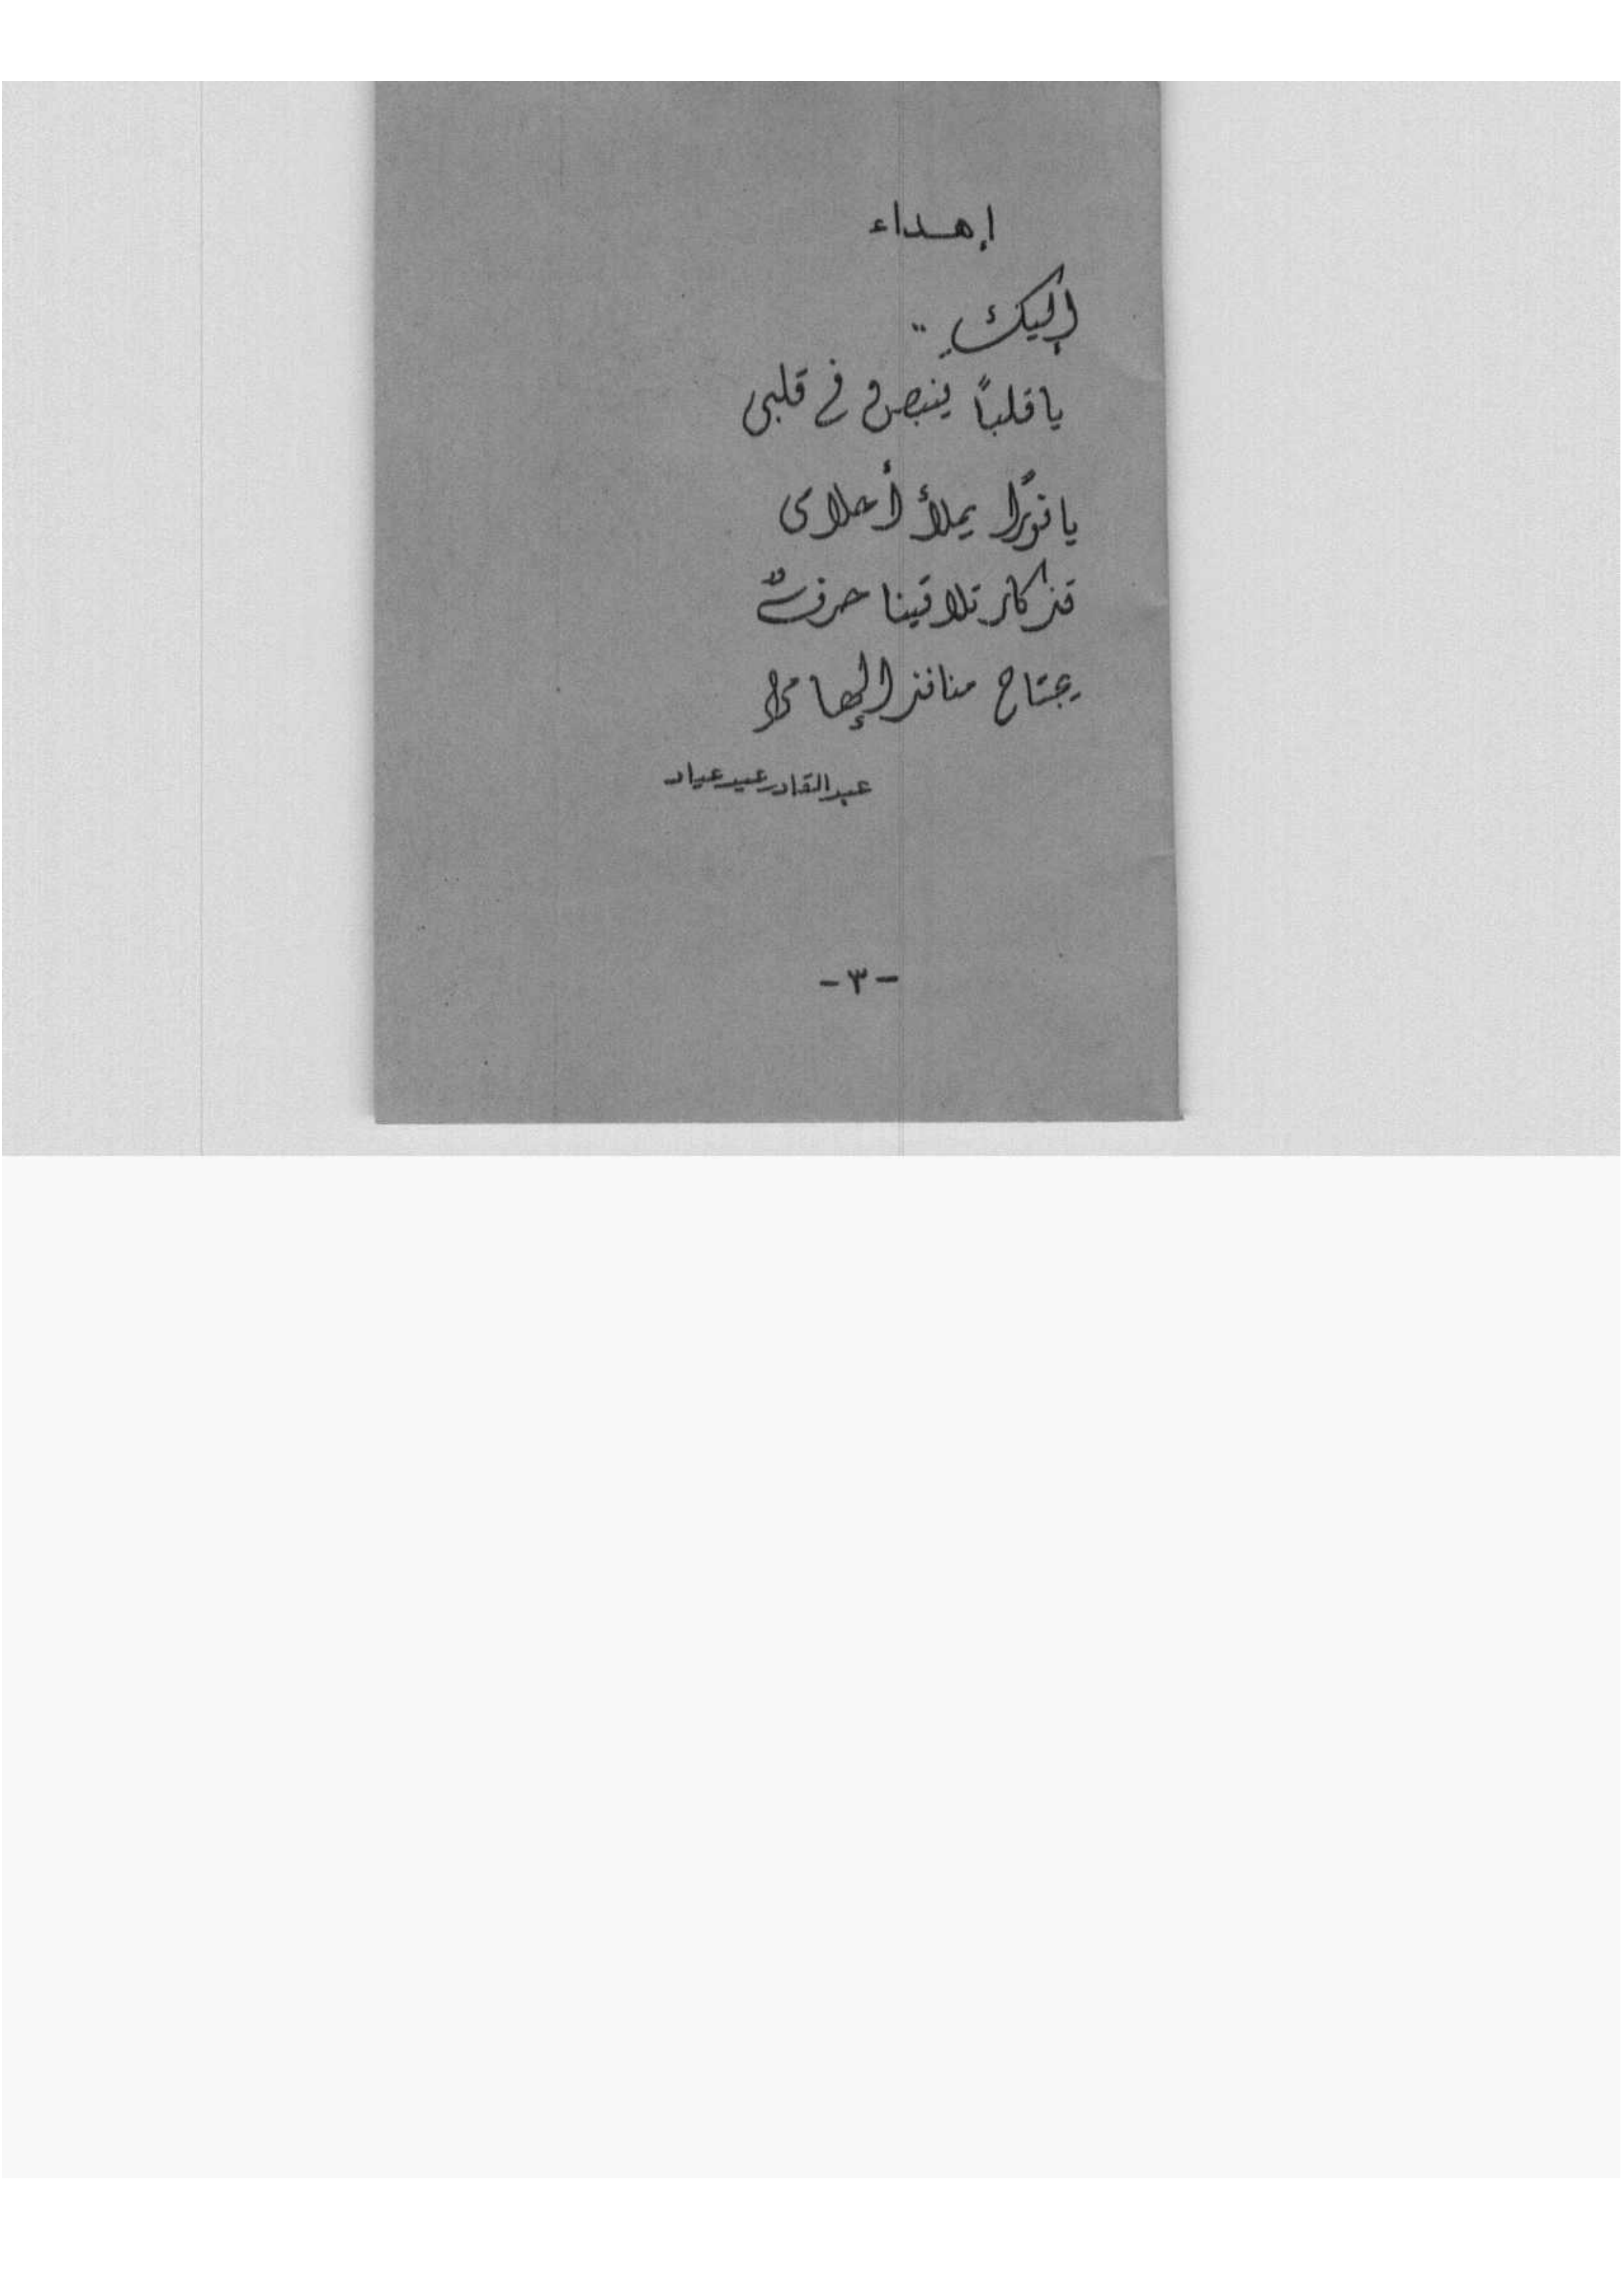 إهداء
إليكِ ..
يا قلباً ينبض في قلبى
يا نورًا يملأ أحلامى
تذكار تلاقينا حرفٌ
يجتاح منافذ إلهامى
عبد القادر عيد عياد
- ٣ -